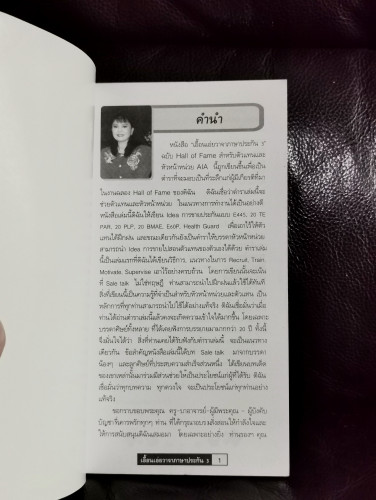 คำนำ
หนังสือ "เอื้อนเอ่ยวาจาภาษาประกัน 3"
ฉบับ Hall of Fame สำหรับตัวแทนและ
หัวหน้าหน่วย AIA นี้ถูกเขียนขึ้นเพื่อเป็น
ตำราที่จะมอบเป็นที่ระลึกแก่ผู้มีเกียรติที่มา
ในงานฉลอง Hall of Fame ของดิฉัน ดิฉันเชื่อว่าตำราเล่มนี้จะ
ช่วยตัวแทนและหัวหน้าหน่วย ในแนวทางการทำงานได้เป็นอย่างดี
หนังสือเล่มนี้ดิฉันได้เขียน Idea การขายประกันแบบ Ex45, 20 TE
PAR, 20 PLP, 20 BMAE, ExtP, Health Guard เพื่อแจกไว้ให้ตัว
แทนได้ฝึกฝน และขณะเดียวกันยังเป็นตำราให้บรรดาหัวหน้าหน่วย
สามารถนำ Idea การขายไปสอนตัวแทนของตัวเองได้ด้วย ตำราเล่ม
นี้เป็นเล่มแรกที่ดิฉันได้เขียนวิธีการ, แนวทางในการ Recruit, Train,
Motivate, Supervise เอาไว้อย่างครบถ้วน โดยการเขียนนั้นจะเน้น
ที่ Sale talk ไม่ใช่ทฤษฎี ท่านสามารถนำไปฝึกฝนแล้วใช้ได้ทันที
สิ่งที่เขียนนี้เป็นความรู้ที่จำเป็นสำหรับหัวหน้าหน่วยและตัวแทน เป็น
หลักการที่ทุกท่านสามารถนำไปใช้ได้อย่างแท้จริง ดิฉันเชื่อมั่นว่าเมื่อ
ท่านได้อ่านตำราเล่มนี้แล้วคงจะเกิดความเข้าใจได้มากขึ้น โดยเฉพาะ
บรรดาศิษย์ทั้งหลาย ที่ได้เคยฟังการบรรยายมามากกว่า 30 ปี ทั้งนี้
จึงมั่นใจได้ว่า สิ่งที่ท่านเคยได้รับฟังกับตำราเล่มนี้ จะเป็นแนวทาง
เดียวกัน ข้อสำคัญหนังสือเล่มนี้ได้บท Sale talk มาจากบรรดา
น้องๆ และลูกศิษย์ที่ประสบความสำเร็จส่วนหนึ่ง ได้เขียนบทเด็ด
ของเขาเหล่านั้นมาร่วมมีส่วนช่วยให้เป็นประโยชน์แก่ผู้ที่ได้รับ ดิฉัน
เชื่อมั่นว่าทุกบทความ ทุกดวงใจ จะเป็นประโยชน์แก่ทุกท่านอย่าง
แท้จริง
ขอกราบขอบพระคุณ ครู-บาอาจารย์-ผู้มีพระคุณ - ผู้บังคับ
บัญชาที่เคารพรักทุกๆ ท่าน ที่ได้กรุณาอบรมสั่งสอนให้กำลังใจและ
ให้การสนับสนุนดิฉันเสมอมา โดยเฉพาะอย่างยิ่ง ท่านรองฯ คุณ
เอื้อนเอ่ยวาจาภาษาประกัน 3 1